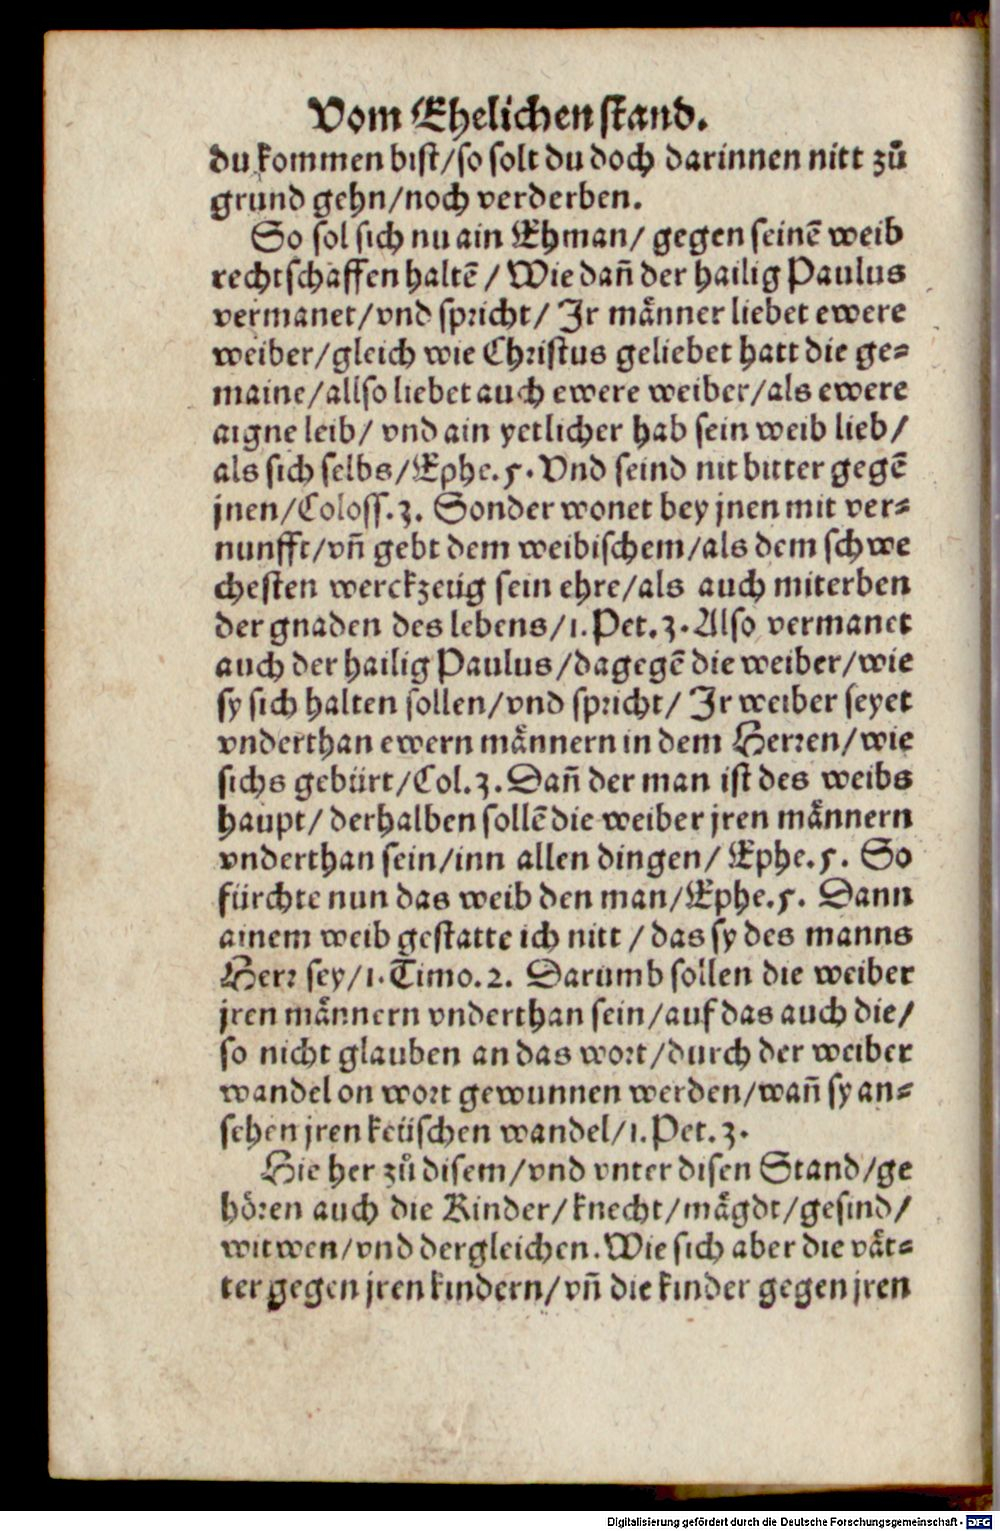 Vom Ehelichen stand.
du kommen bist/so solt du doch darinnen nitt zuͦ
grund gehn/noch verderben.
So sol sich nu ain Ehman/ gegen seinē weib
rechtschaffen haltē / Wie dañ der hailig Paulus
vermanet/vnd spricht/ Jr maͤnner liebet ewere
weiber/gleich wie Christus geliebet hatt die ge=
maine/allso liebet auch ewere weiber/als ewere
aigne leib/ vnd ain yetlicher hab sein weib lieb/
als sich selbs/Ephe.5. Vnd seind nit bitter gegē
jnen/Coloss.3. Sonder wonet bey jnen mit ver=
nunfft/vñ gebt dem weibischem/als dem schwe
chesten werckzeüg sein ehre/als auch miterben
der gnaden des lebens/1.Pet.3. Also vermanet
auch der hailig Paulus/dagegē die weiber/wie
sy sich halten sollen/vnd spricht/ Jr weiber seyet
vnderthan ewern maͤnnern in dem Herren/wie
sichs gebürt/Col.3. Dañ der man ist des weibs
haupt/ derhalben sollē die weiber jren maͤnnern
vnderthan sein/inn allen dingen/ Ephe.5. So
fürchte nun das weib den man/Ephe.5. Dann
ainem weib gestatte ich nitt / das sy des manns
Herr sey/1.Timo.2. Darumb sollen die weiber
jren maͤnnern vnderthan sein/auf das auch die/
so nicht glauben an das wort/durch der weiber
wandel on wort gewunnen werden/wañ sy an=
sehen jren keüschen wandel/1.Pet.3.
Hie her zuͦ disem/vnd vnter disen Stand/ge
hoͤren auch die Kinder/knecht/maͤgdt/gesind/
witwen/vnd dergleichen. Wie sich aber die vaͤt=
ter gegen jren kindern/vñ die kinder gegen jren
Digitalisierung gefördert durch die Deutsche Forschungsgemeinschaft - DFG